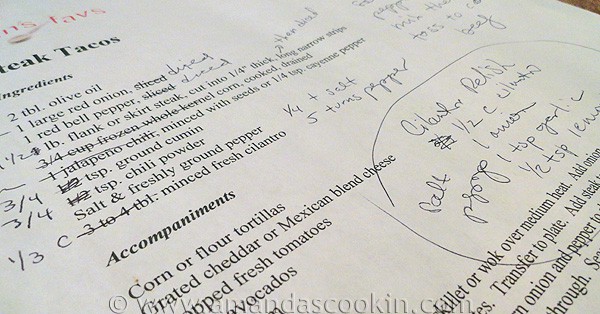 n's favs
teak Tacos
ngredients
2 tbl. olive oil
1 large red onion, sliced diced
1 red bell pepper, sliced diced
1 1/2 lb. flank or skirt steak, cut into 1/4" thick, long narrow strips
3/4 cup frozen whole kernel corn, cooked, drained
1 jalapeno chili, minced with seeds or 1/4 tsp. cayenne pepper
3/4 1/2 tsp. ground cumin
3/4 1/2 tsp. chili powder
Salt & freshly ground pepper
1/3 C 3 to 4 tbl. minced fresh cilantro
1/4 t salt
5 turns pepper
pepper
toss to
beef
Cilantro Relish
1/2 C cilantro
1 onion
1 tsp garlic
1/2 tsp
Salt
pepper
Accompaniments
Corn or flour tortillas
rated cheddar or Mexican blend cheese
pped fresh tomatoes
vocados
killet or wok over medium heat. Add onion
es. Transfer to plate. Add steak
rn onion and pepper to
through. Serv
© www.amandascookin.com